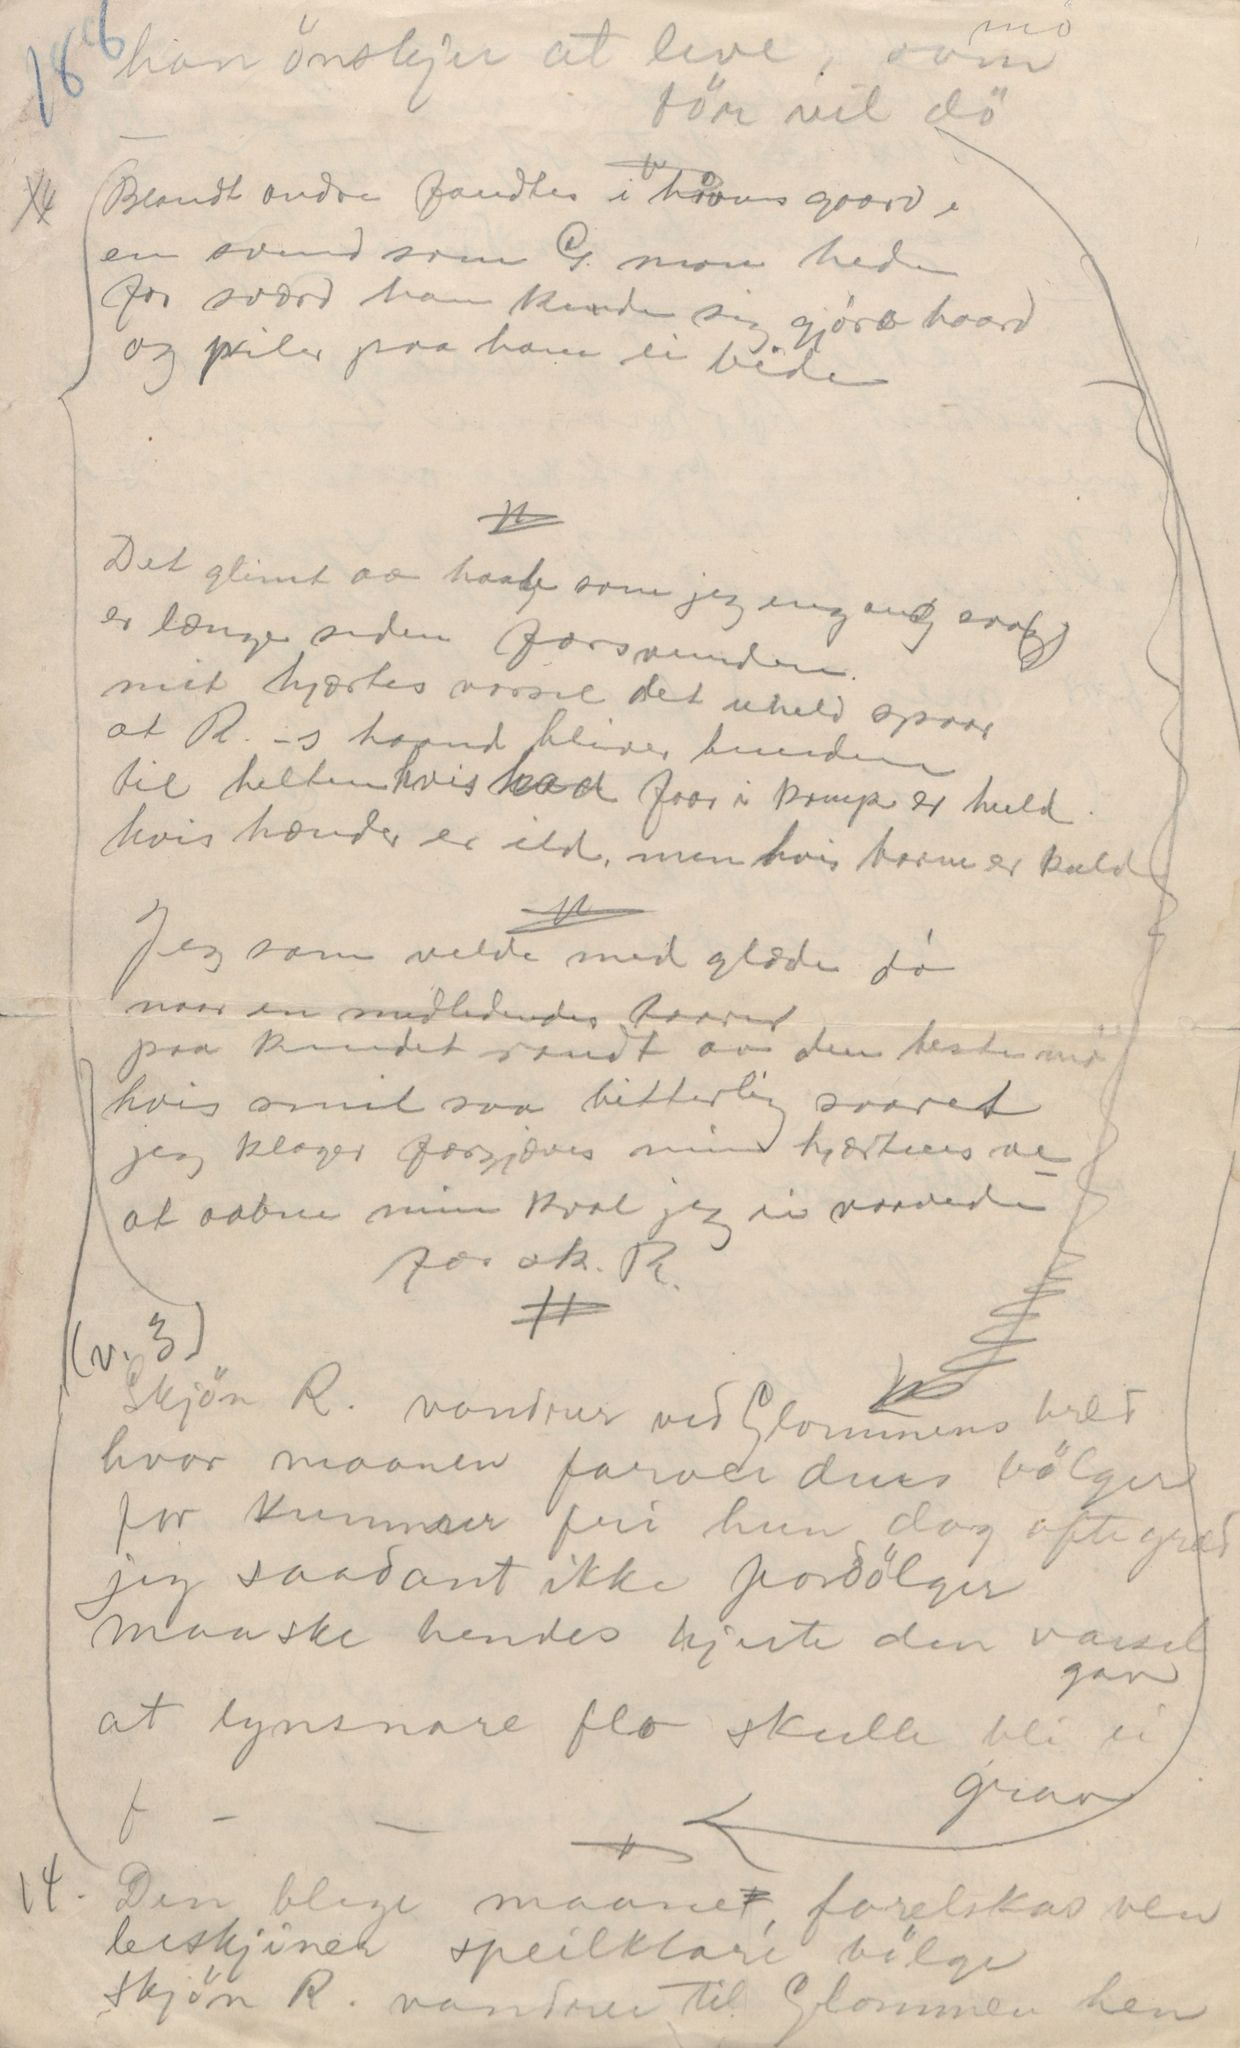 mö
han önskjer at leve, som
för vil dö
Blandt andre fandtes i hirdens gaard
en svend som G. mon hede
for sværd han kunde sig gjöra haard
og piler paa ham ei bide
Det glimt av haab som jeg engang saa
er længe siden forsvunden.
mit hjærtes varsel det uheld spaar
at R.-s haand bliver bunden
til helten hvis had faar i kamp er huld.
hvis hænder er ild, men hvis barm er kuld
Jeg som vilde med glæde dö
naar en medlidendes taarer
paa kindet randt av den beste mö
hvis smil saa bitterlig saaret
jeg klager forgjæves min hjærtens ve
at aabne min kval jeg ei vaavede
for sk. R.
(v. 3)
Skjön R. vandrer ved Glommens bred
hvor maanen farver dens bölger
for kummer fri hun dog ofte græd
jeg saadant ikke fordölger
maaske hendes hjerte den varsel
gav
at lynsnare flo skulle bli ei
grav
f - -
14. Den blege maane, forelskas ven
beskjiner speilklare bölge
skjön R. vandrer til Glommen hen